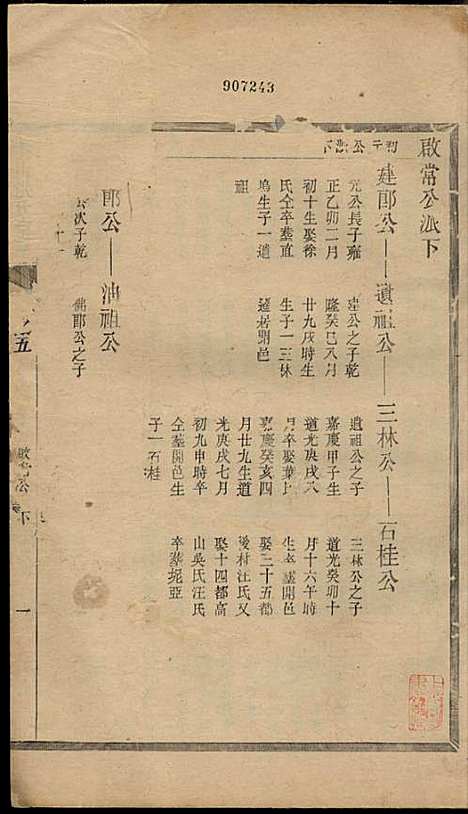 907243
啟常公派下
建郎公——遺祖公——三林公——石桂公
元公長子雍
正乙卯二月
初十生娶徐
氏仝卒塟直
塢生子一遺
祖
建公之子乾
隆癸巳八月
廿九戌時生
生子一三林
遷居開邑
遺祖公之子
嘉慶甲子生
道光庚戌八
月卒娶葉氏
嘉慶癸亥四
月廿九生道
光庚戌七月
初九申時卒
仝塟開邑生
子一石桂
三林公之子
道光癸卯十
月十六午時
生卒塟開邑
娶三十五都
後村汪氏又
娶十四都高
山吳氏汪氏
卒塟坭亞
郎公——油祖公
公次子乾
郎公之子
五
啟常公
下
一